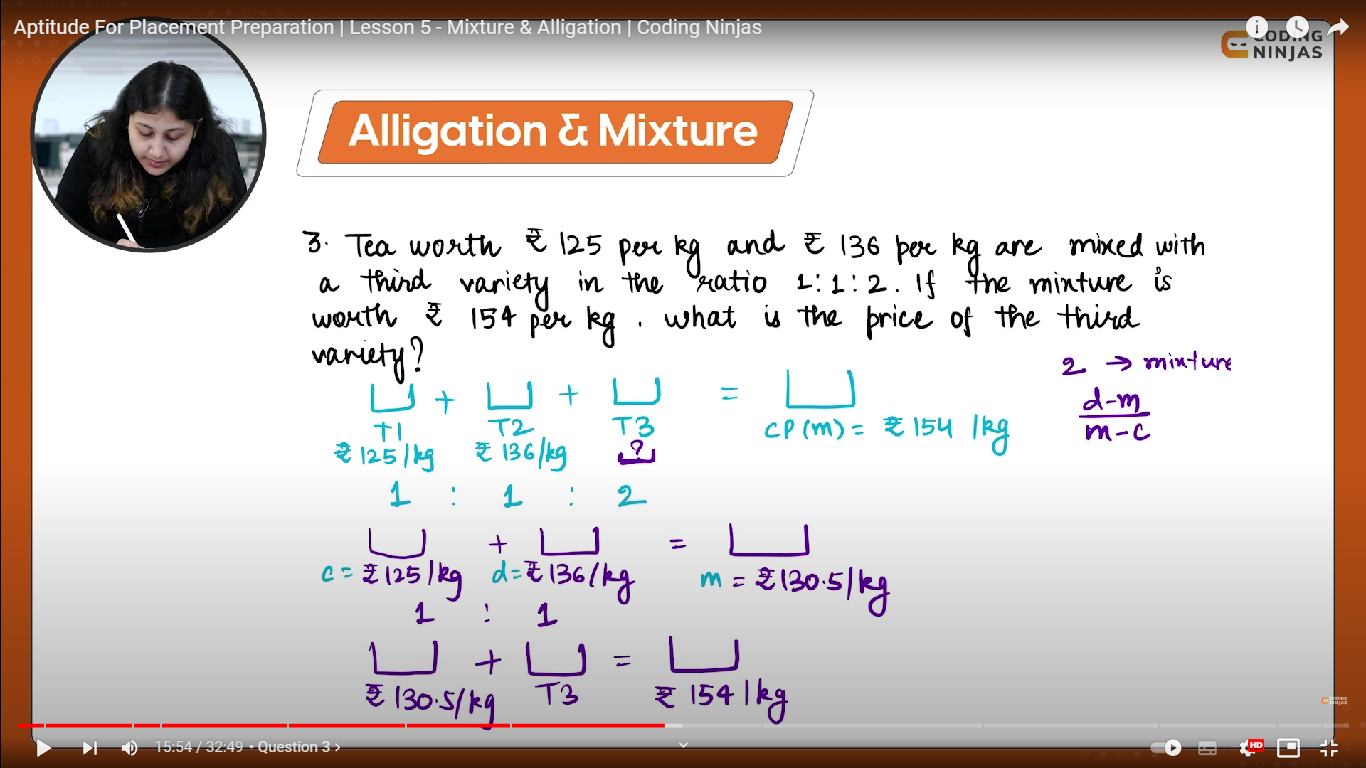 Aptitude For Placement Preparation | Lesson 5 - Mixture & Alligation | Coding Ninjas
CODING
NINJAS
Alligation & Mixture
3. Tea worth ₹ 125 per kg and ₹ 136 per kg are mixed with
a third variety in the ratio 1:1:2. If the mixture is
worth ₹ 154 per kg. what is the price of the third
variety?
2 → mixture
d-m
m-c
+ + =
T1 T2 T3 CP(m) = ₹ 154 /kg
₹ 125/kg ₹ 136/kg ?
1 : 1 : 2
+ =
c = ₹125/kg d=₹136/kg m = ₹130.5/kg
1 : 1
+ =
₹ 130.5/kg T3 ₹ 154/kg
CODING
NINJAS
15:54 / 32:49 • Question 3 ›
HD